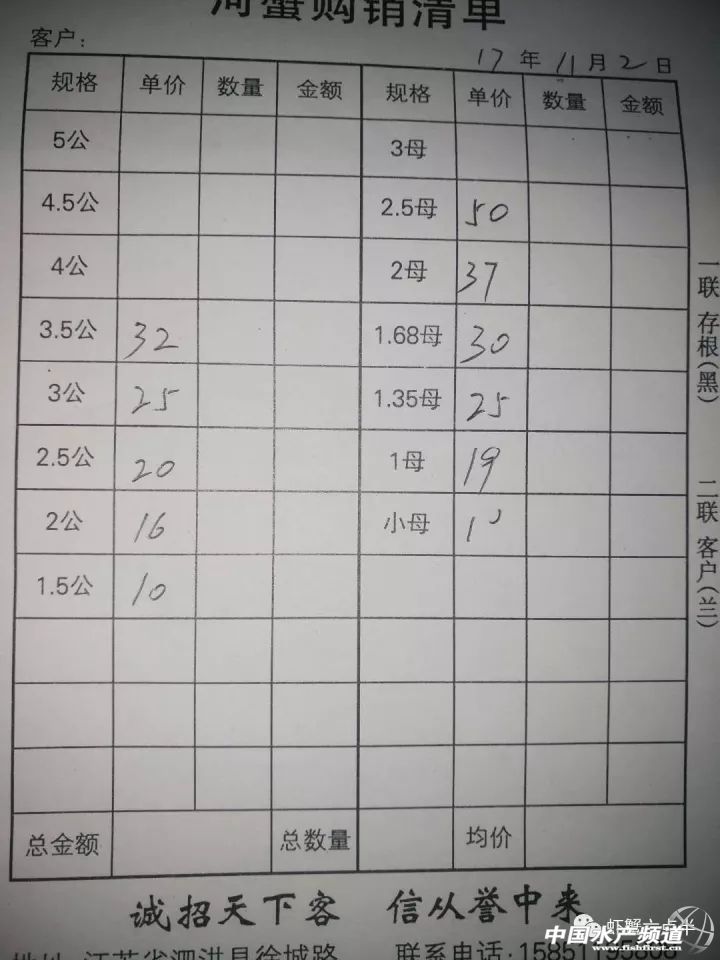 河蟹购销清单
客户: 17年11月2日
规格 单价 数量 金额 规格 单价 数量 金额
5公 3母
4.5公 2.5母 50
4公 2母 37
3.5公 32 1.68母 30
3公 25 1.35母 25
2.5公 20 1母 19
2公 16 小母
1.5公 10
总金额 总数量 均价
诚招天下客 信从誉中来
地址:江苏省泗洪县徐城路 联系电话:15851195806
一联 存根(黑) 二联 客户(兰)
虾蟹六点半
中国水产频道
www.fishfirst.cn